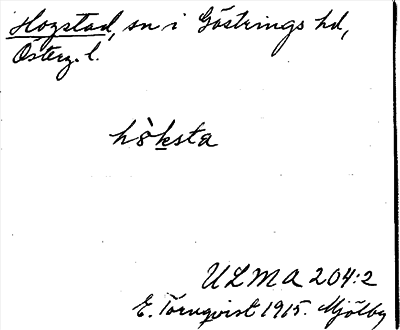 Hogstad, sn i Göstrings hd,
Österg. l.
hò̀ksta
ULMA 204:2
E. Törnqvist 1915. Mjölby